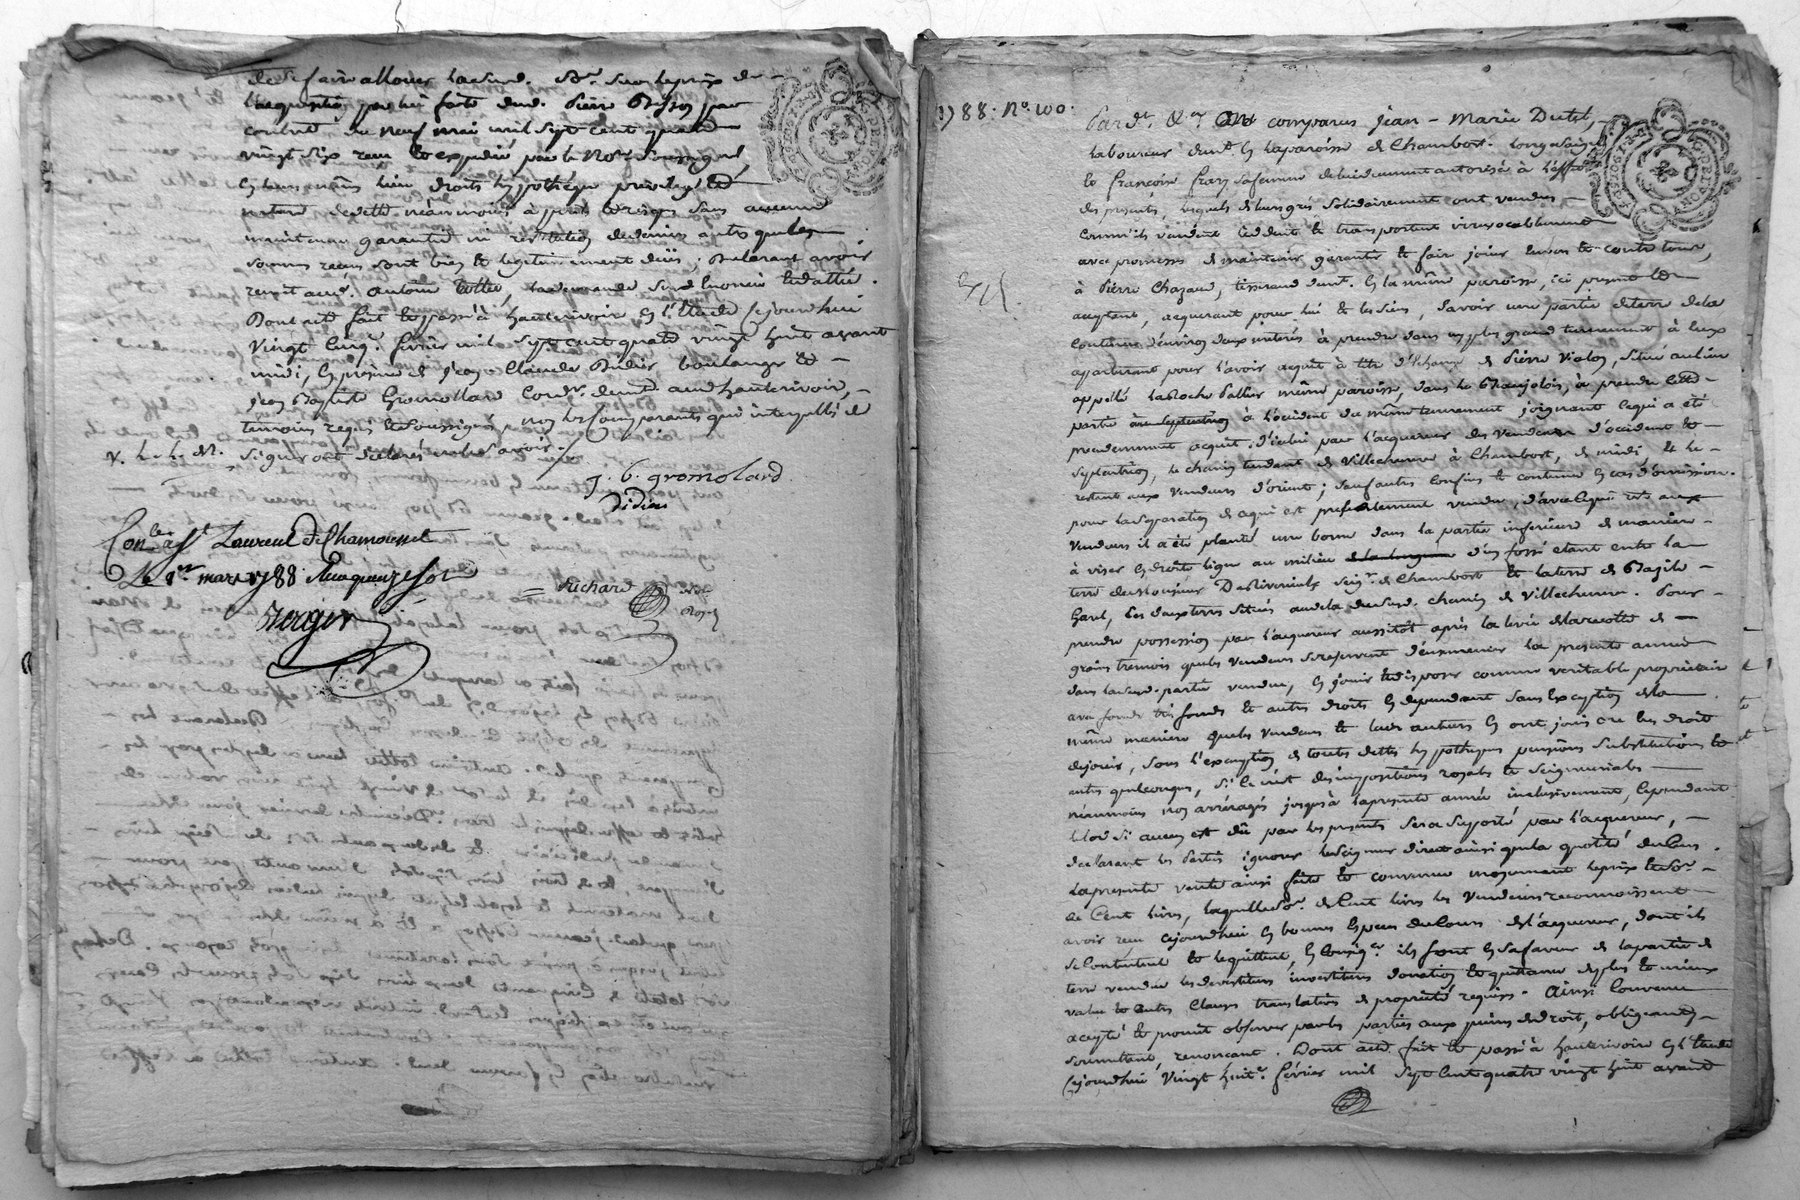 de se faire allouer lad. sud. Sr. sur le prix de
l'acquisition par lui faite dud. Pierre Besson par
contrat du neuf mai mil sept cent quatre
vingt six reçu et expedié par le Nore. soussigné,
en leurs mêmes lieu droits hypothéque privilege et
nature de dette néanmoins à perils et risques sans aucune
maintenue garantie ni restitution de deniers autre que les
sommes reçues sont bien et legitimement dües ; Declarant avoir
remit aud. Antoine Cottu,
Dont acte fait et passé à hauterivoire en l'Etude cejourdhui
Vingt Cinq. fevrier mil sept cent quatre vingt huit avant
midi, en presence de Jean Claude Didier boulanger et
Jean Baptiste Gromollard Cordr. demt. aud. hauterivoire,
temoins requis et soussignés non les Comparants qui interpellés de
signer ont declarés ne le savoir.
J. B. gromolard
Didier
Conlé. à St. Laurent de Chamousset
Le 1er. mars 1788 Reçu quinze sol
Verger
Richard
Not.
Royl
1788. No. 100.
Par dt. &a. ont comparus jean-Marie Dutel,
laboureur demt. en la paroisse de Chambost-longesaigne
et françoise fray sa femme de lui düement autorisée à l'effet
des presents, lesquels de leurs grés solidairement ont vendus
comme ils vendent cedent et transportent irrevocablement
avec promesses de maintenir garantir et faire jouir envers et contre tous,
à Pierre Chazaud, tisserand demt. en la même paroisse, ici present et
acceptant, acquerant pour lui et les siens, Savoir une partie de terre de la
contenue d'environ deux meterés à prendre dans un plus grand tennement à eux
appartenant pour l'avoir acquit à titre d'Echange de Pierre Violon, situé au lieu
appellé Laroche même paroisse, dans le Beaujolois, à prendre lad.
partie au septentrion à l'occident du même tennement joignant ce qui a été
precedemment acquit d'icelui par l'acquereur des Vendeurs d'occident et
septentrion, le chemin tendant de Villecheneve à Chambost, de midi, et le
restant aux Vendeurs d'orient ; sauf autres confins et contenue en cas d'omission.
pour la separation de ce qui est presentement vendu, d'avec ce qui reste aux
Vendeurs il a été planté une borne dans la partie inferieure de maniere
à viser en droite ligne au milieu d'un fossé etant entre la
terre du Monsieur Desriverieulx seigr. de Chambost et la terre de Bazile
Garel, les deux terres situés au dela du sud. chemin de Villecheneve. Pour
prendre possession par l'acquereur aussitôt après la levée de la recolte de
grains tremois que les vendeurs se reservent d'ensemencer la presente année
dans lad. sud. partie vendue, en jouir et disposer comme veritable proprietaire
avec fonds tres fonds et autres droits en dependant sans exception de la
même maniere que les Vendeurs et leurs auteurs en ont jouis ou eu droit
de jouir, sous l'exception de toutes dettes hypotheques pensions substitutions et
autres quelconques, si ce n'est des impositions royales et seigneuriales
néanmoins non arréragés jusqu'à la presente année inclusivement, Cependant
le lod si aucun est dû par les presents sera suporté par l'acquereur,
declarant les parties ignorer le seigneur direct ainsi que la quotité du cens.
La presente vente ainsi faite et convenue moyennant le prix et Se.
de Cent livres, laquelle Se. de Cent livres les Vendeurs reconnoissent
avoir reçu cejourdhui en bonnes Especes du Cours de l'acquereur, dont ils
se Contentent et le quittent, en Conseqce. ils font en sa faveur de la partie de
terre vendue les devestitures investitures donation et quittance de plus et mieux
value et autres Clauses translatives de proprieté requises. Ainsi Convenu
accepté et promit observer par les parties aux peines de droit, obligeants
soumettant renonçant. Dont acte fait et passé à hauterivoire en l'Etude
cejourdhui Vingt huitr. fevrier mil sept Cent quatre vingt huit avant